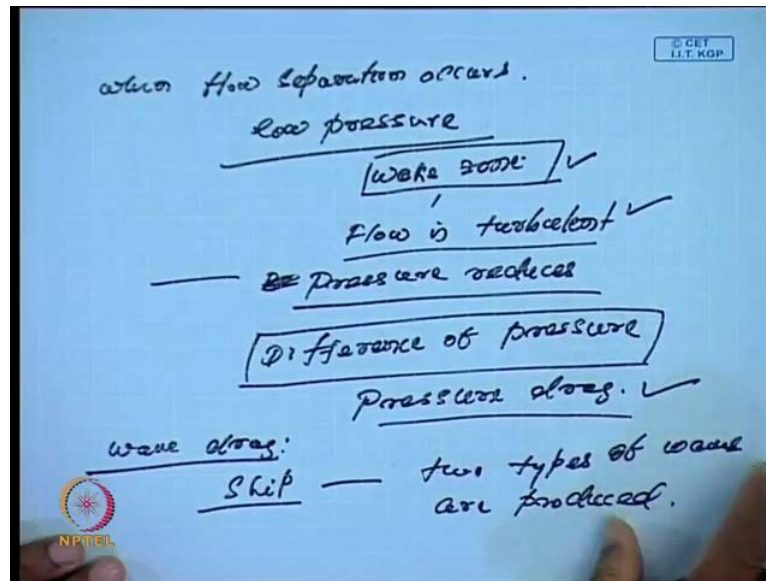 © CET
I.I.T. KGP
when flow separation occurs.
low pressure
Wake zone
Flow is turbulent
Pressure reduces
Difference of pressure
Pressure drag.
wave drag:
Ship — two types of wave
are produced.
NPTEL